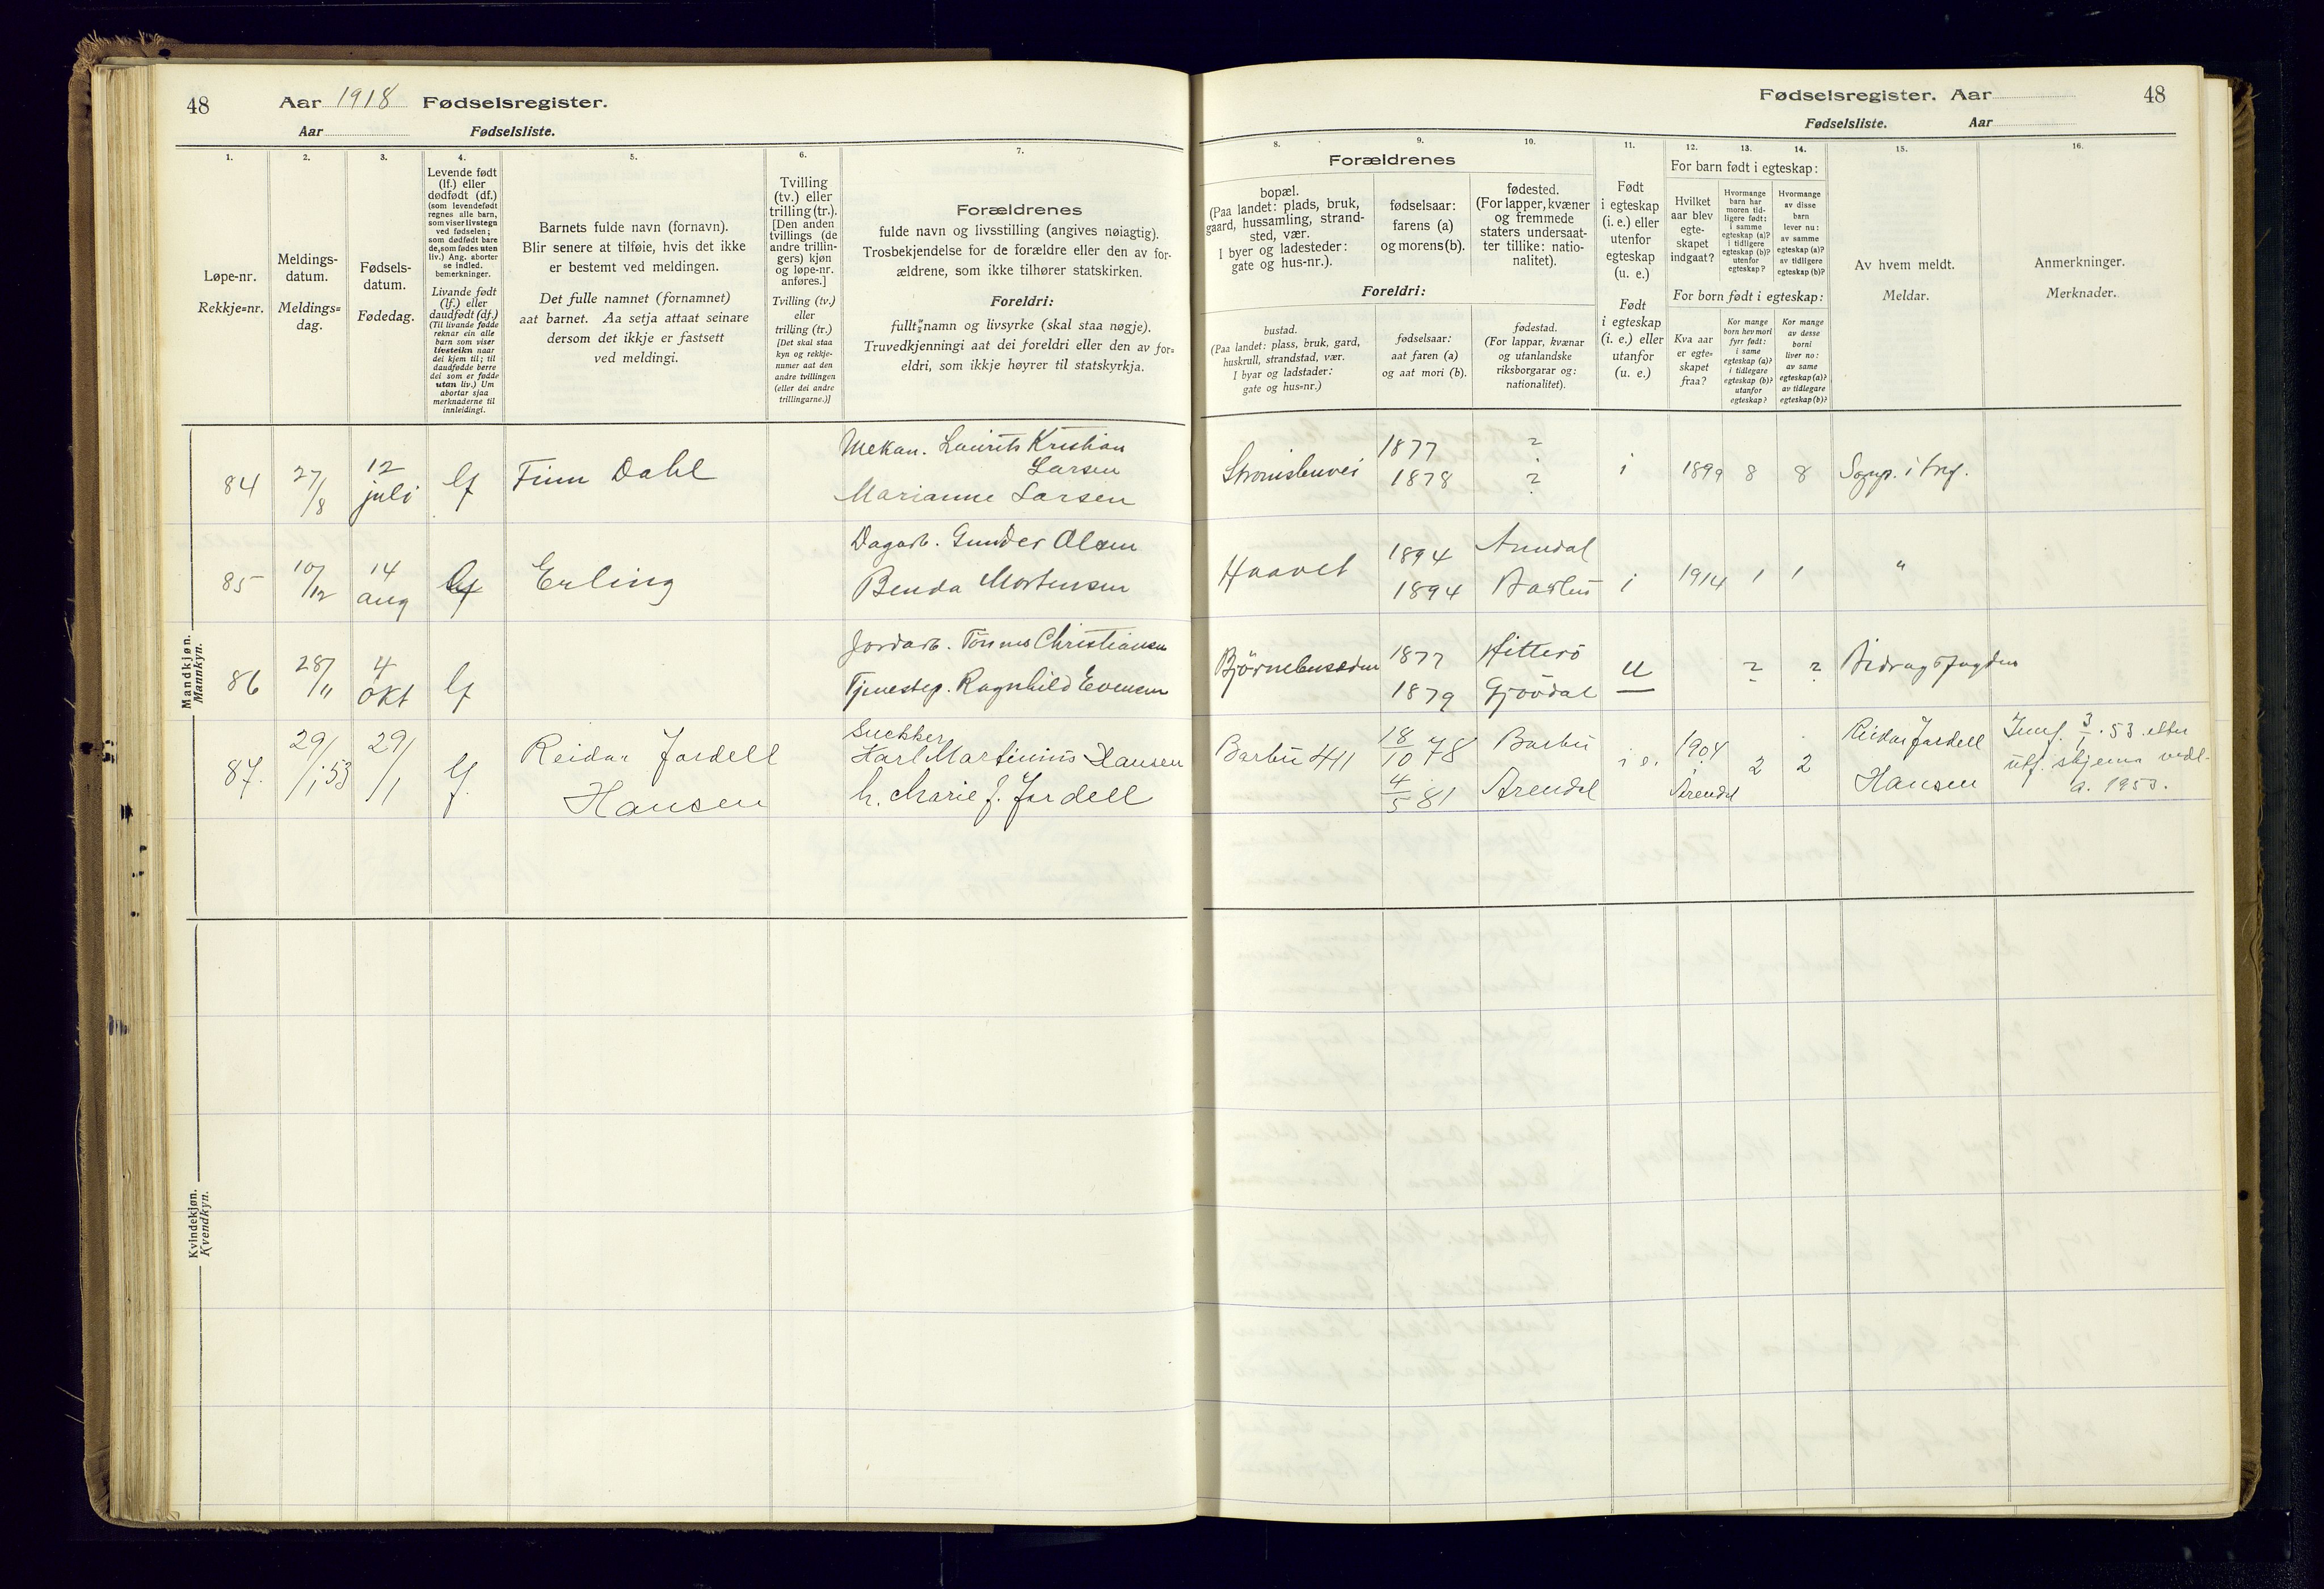 48 Aar 1918 Fødselsregister.
Aar Fødselsliste.
Fødselsregister. Aar 48
Fødselsliste. Aar
1.
Løpe-nr.
Rekkje=nr.
2.
Meldings-
datum.
Meldings=
dag.
3.
Fødsels-
datum.
Fødedag.
4.
Levende født
(lf.) eller
dødfødt (df.)
(som levendefødt
regnes alle barn,
som viser livstegn
ved fødselen;
som dødfødt bare
de, som fødes uten
liv.) Ang. aborter
se indled.
bemerkninger.
Livande født
(lf.) eller
daudfødt (df.)
(Til livande fødde
reknar ein alle
barn som viser
livsteikn naar
dei kjem til; til
daudfødde berre
dei som er fødde
utan liv.) Um
abortar sjaa
merknaderne til
innleidingi.
5.
Barnets fulde navn (fornavn).
Blir senere at tilføie, hvis det ikke
er bestemt ved meldingen.
Det fulle namnet (fornamnet)
aat barnet. Aa setja attaat seinare
dersom det ikkje er fastsett
ved meldingi.
6.
Tvilling
(tv.) eller
trilling (tr.).
[Den anden
tvillings (de
andre trillin-
gers) kjøn
og løpe-nr.
anføres.]
Tvilling (tv.)
eller
trilling (tr.)
[Det skal staa
kyn og rekkje-
numer aat den
andre tvillingen
(eller dei andre
trillingarne.)]
7.
Forældrenes
fulde navn og livsstilling (angives nøiagtig).
Trosbekjendelse for de forældre eller den av for-
ældrene, som ikke tilhører statskirken.
Foreldri:
fullt namn og livsyrke (skal staa nøgje).
Truvedkjenningi aat dei foreldri eller den av for=
eldri, som ikkje høyrer til statskyrkja.
8. 9. 10.
Forældrenes
bopæl.
(Paa landet: plads, bruk,
gaard, hussamling, strand-
sted, vær.
I byer og ladesteder:
gate og hus-nr.).
fødselsaar:
farens (a)
og morens (b).
fødested.
(For lapper, kvæner
og fremmede
staters undersaat-
ter tillike: natio-
nalitet).
Foreldri:
bustad.
(Paa landet: plass, bruk, gard,
huskrull, strandstad, vær.
I byar og ladstader:
gate og hus=nr.)
fødselsaar:
aat faren (a)
og aat mori (b).
fødestad.
(For lappar, kvænar
og utanlandske
riksborgarar og:
nationalitet).
11.
Født
i egteskap
(i. e.) eller
utenfor
egteskap
(u. e.)
Født
i egteskap
(i. e.) eller
utanfor
(u. e.)
12. 13. 14.
For barn født i egteskap:
Hvilket
aar blev
egte-
skapet
indgaat?
Hvormange
barn har
moren tid-
ligere født:
i samme
egteskap (a)?
i tidligere
egteskap (b)?
utenfor
egteskap?
Hvormange
av disse
barn
lever nu:
av samme
egteskap (a)?
av tidligere
egteskap (b)?
For born født i egteskap:
Kva aar
er egte=
skapet
fraa?
Kor mange
born hev mori
fyrr født:
i same
egteskap (a)?
i tidlegare
egteskap (b)?
utanfor
egteskap?
Kor mange
av desse
borni
liver no:
av same
egteskap (a)?
av tidlegare
egteskap (b)?
15.
Av hvem meldt.
Meldar.
16.
Anmerkninger.
Merknader.
Mandkjøn.
Mannkyn.
84 27/8 12 juli lf Finn Dahl
Mekan. Laurits Kristian
Larsen
Marianne Larsen
1877 ?
1878 ?
i 1899 8 8 Sognp. i
85 10/12 14 aug lf Erling
Dagarb. Gunder Olsen
Benda Mortensen
Haavet
1894 Arendal
1894 Barbu
i 1914 1 1 "
86 28/11 4 okt lf
Jordarb. Tønnes Christiansen
Tjenestep. Ragnhild Evensen
1877 Hitterö
1879 Gjövdal
u ? ? Bidragsfogden
87. 29/1 53 29/1 lf. Reidar Jardell
Hansen
Snekker
Karl Martinius Hansen
h. Marie f. Jardell
Barbu 411
18/10 78 Barbu
4/5 81 Arendal
i e. 1904 i Arendal 2 2
Reidar Jardell
Hansen
Innf. 3/1. 53 etter
utf. skjema vedl.
a. 1953.
Kvindekjøn.
Kvendkyn.